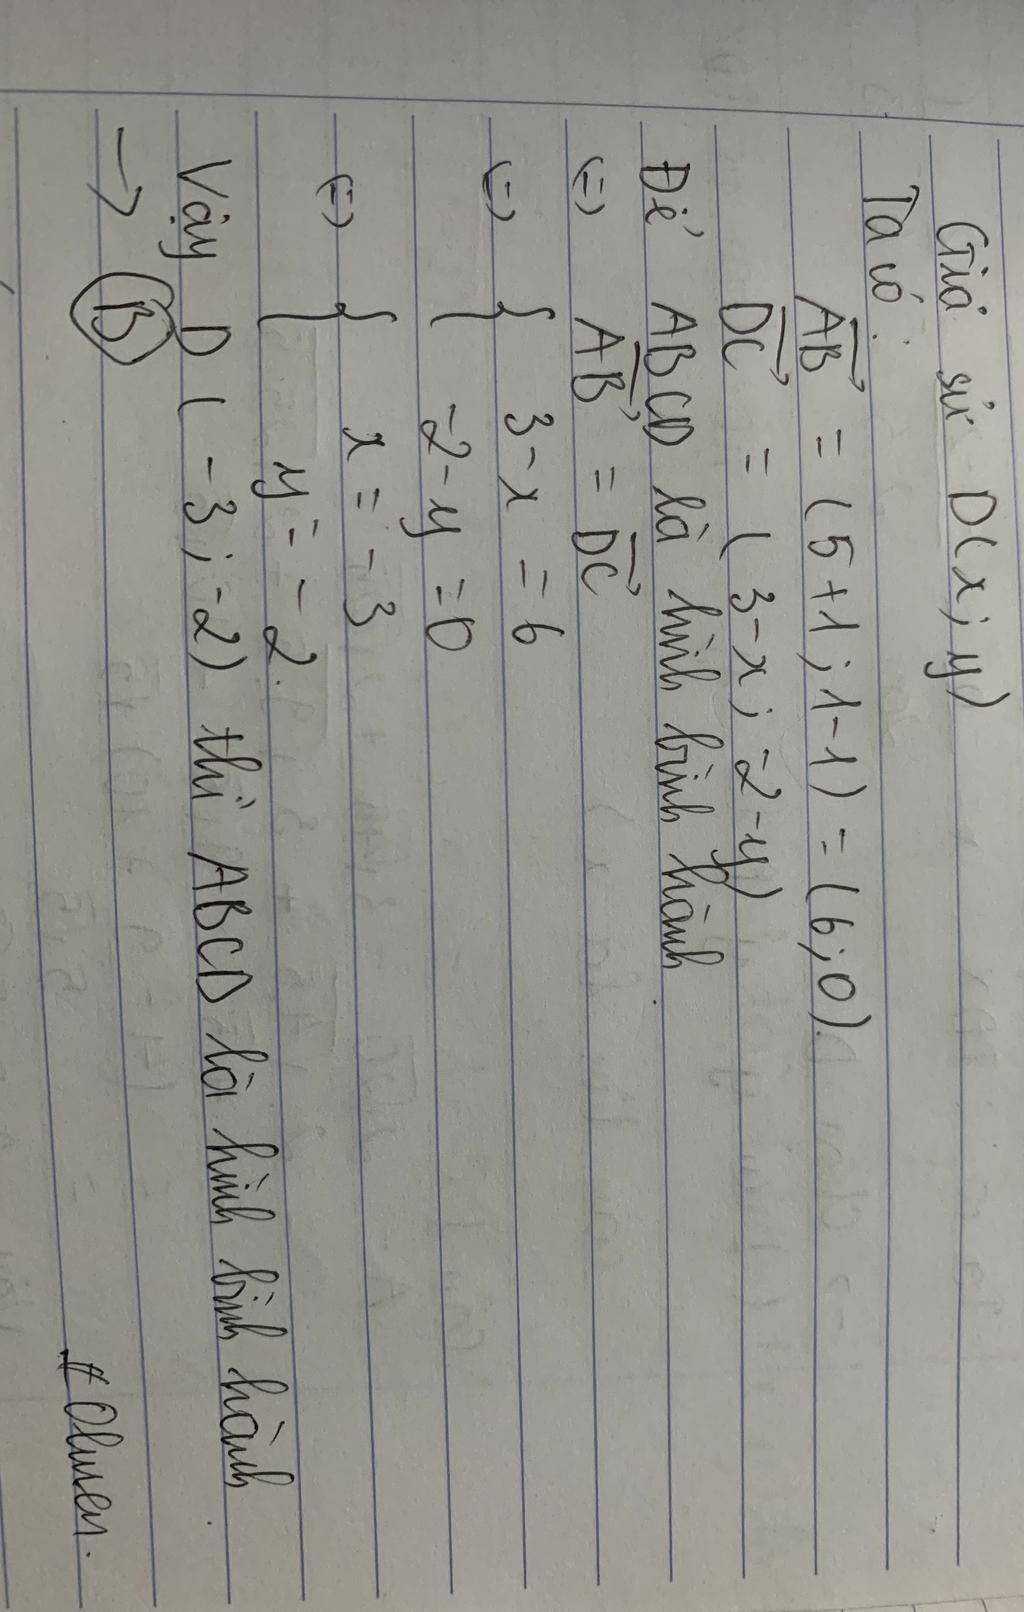 Giả sử D(x; y)
Ta có:
AB = (5+1; 1-1) = (6; 0).
DC = (3-x; -2-y)
Để ABCD là hình bình hành
(=) AB = DC
(=) { 3-x = 6
-2-y = 0
(=) { x = -3
y = -2.
Vậy D (-3; -2) thì ABCD là hình bình hành
→ B
# Olwen.